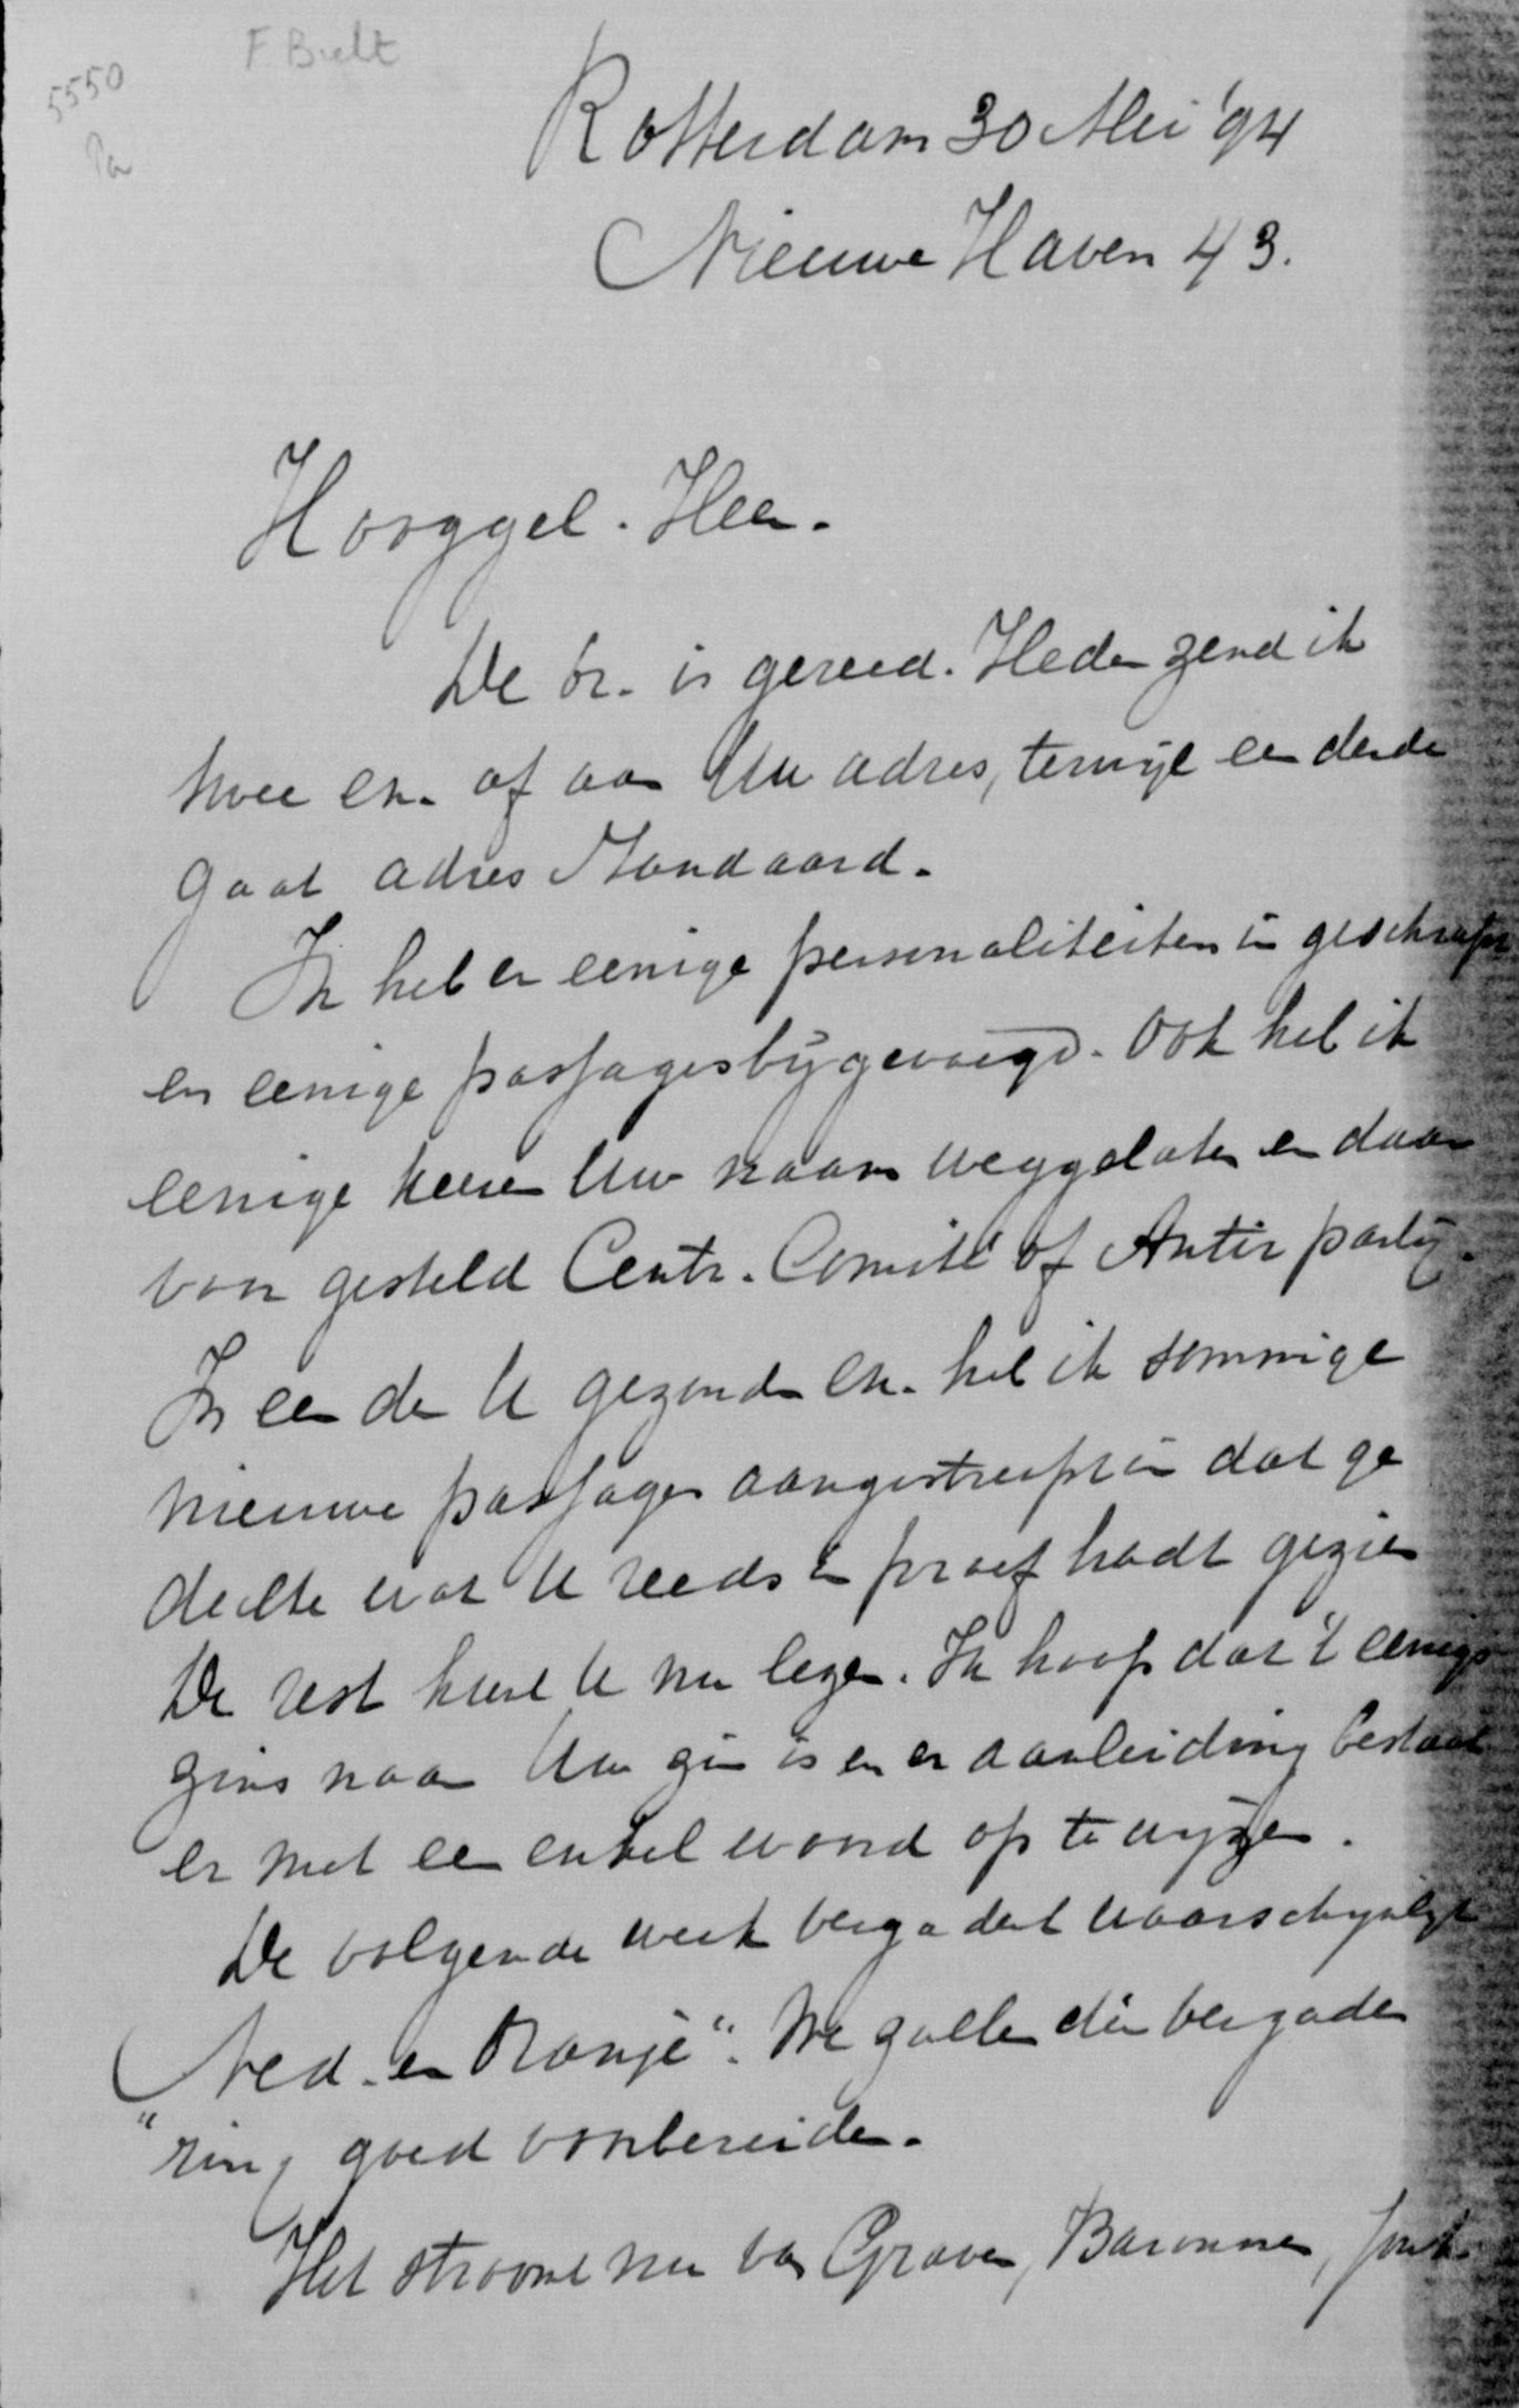 F Bielt
5550
Pa
Rotterdam 30 Mei '94
Nieuwe Haven 43.
Hooggel. Heer.
De br. is gereed. Heden zend ik
twee ex. af aan Uw adres, terwijl een derde
gaat adres Standaard.
Ik heb er eenige personaliteiten in geschrapt
en eenige passages bijgevoegd. Ook heb ik
eenige keeren Uw naam weggelaten en daar
voor gesteld Centr. Comité of Antir partij.
In een der U gezonden ex. heb ik sommige
nieuwe passages aangestreept in dat ge
deelte wat U reeds in proef hadt gezien
De rest kunt U nu lezen. Ik hoop dat 't eenigs
zins naar Uw zin is en er aanleiding bestaat
er met een enkel woord op te wijzen.
De volgende week vergadert waarschijnlijk
Ned. en Oranje". We zullen die vergade
"ring goed voorbereiden.
Het stroomt nu van Graven, Baronnen, Jonkh.